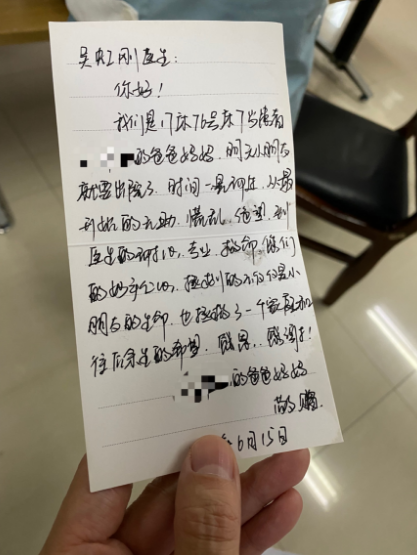 吴虹刚医生:
你好!
我们是17床76号床7号患者
的爸爸妈妈,明天小朋友
就要出院了,时间一晃
开始的无助、慌乱、绝望,到
医生的耐心、专业、
的妙手仁心,拯救的不仅仅是小
朋友的生命,也拯救了一个家庭和
往后余生的希望,感恩,感谢!
的爸爸妈妈
6月15日